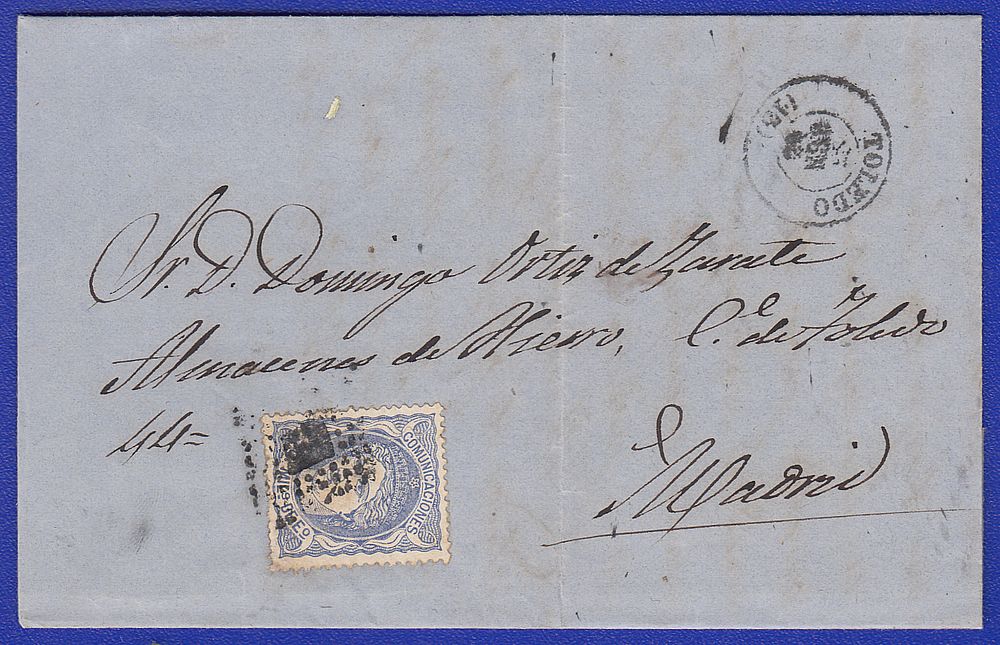 TOLEDO
(13)
Sr. D. Domingo Ortiz de Zarate
Almacenes de Hierro, C.e de Toledo
44=
Madrid
COMUNICACIONES